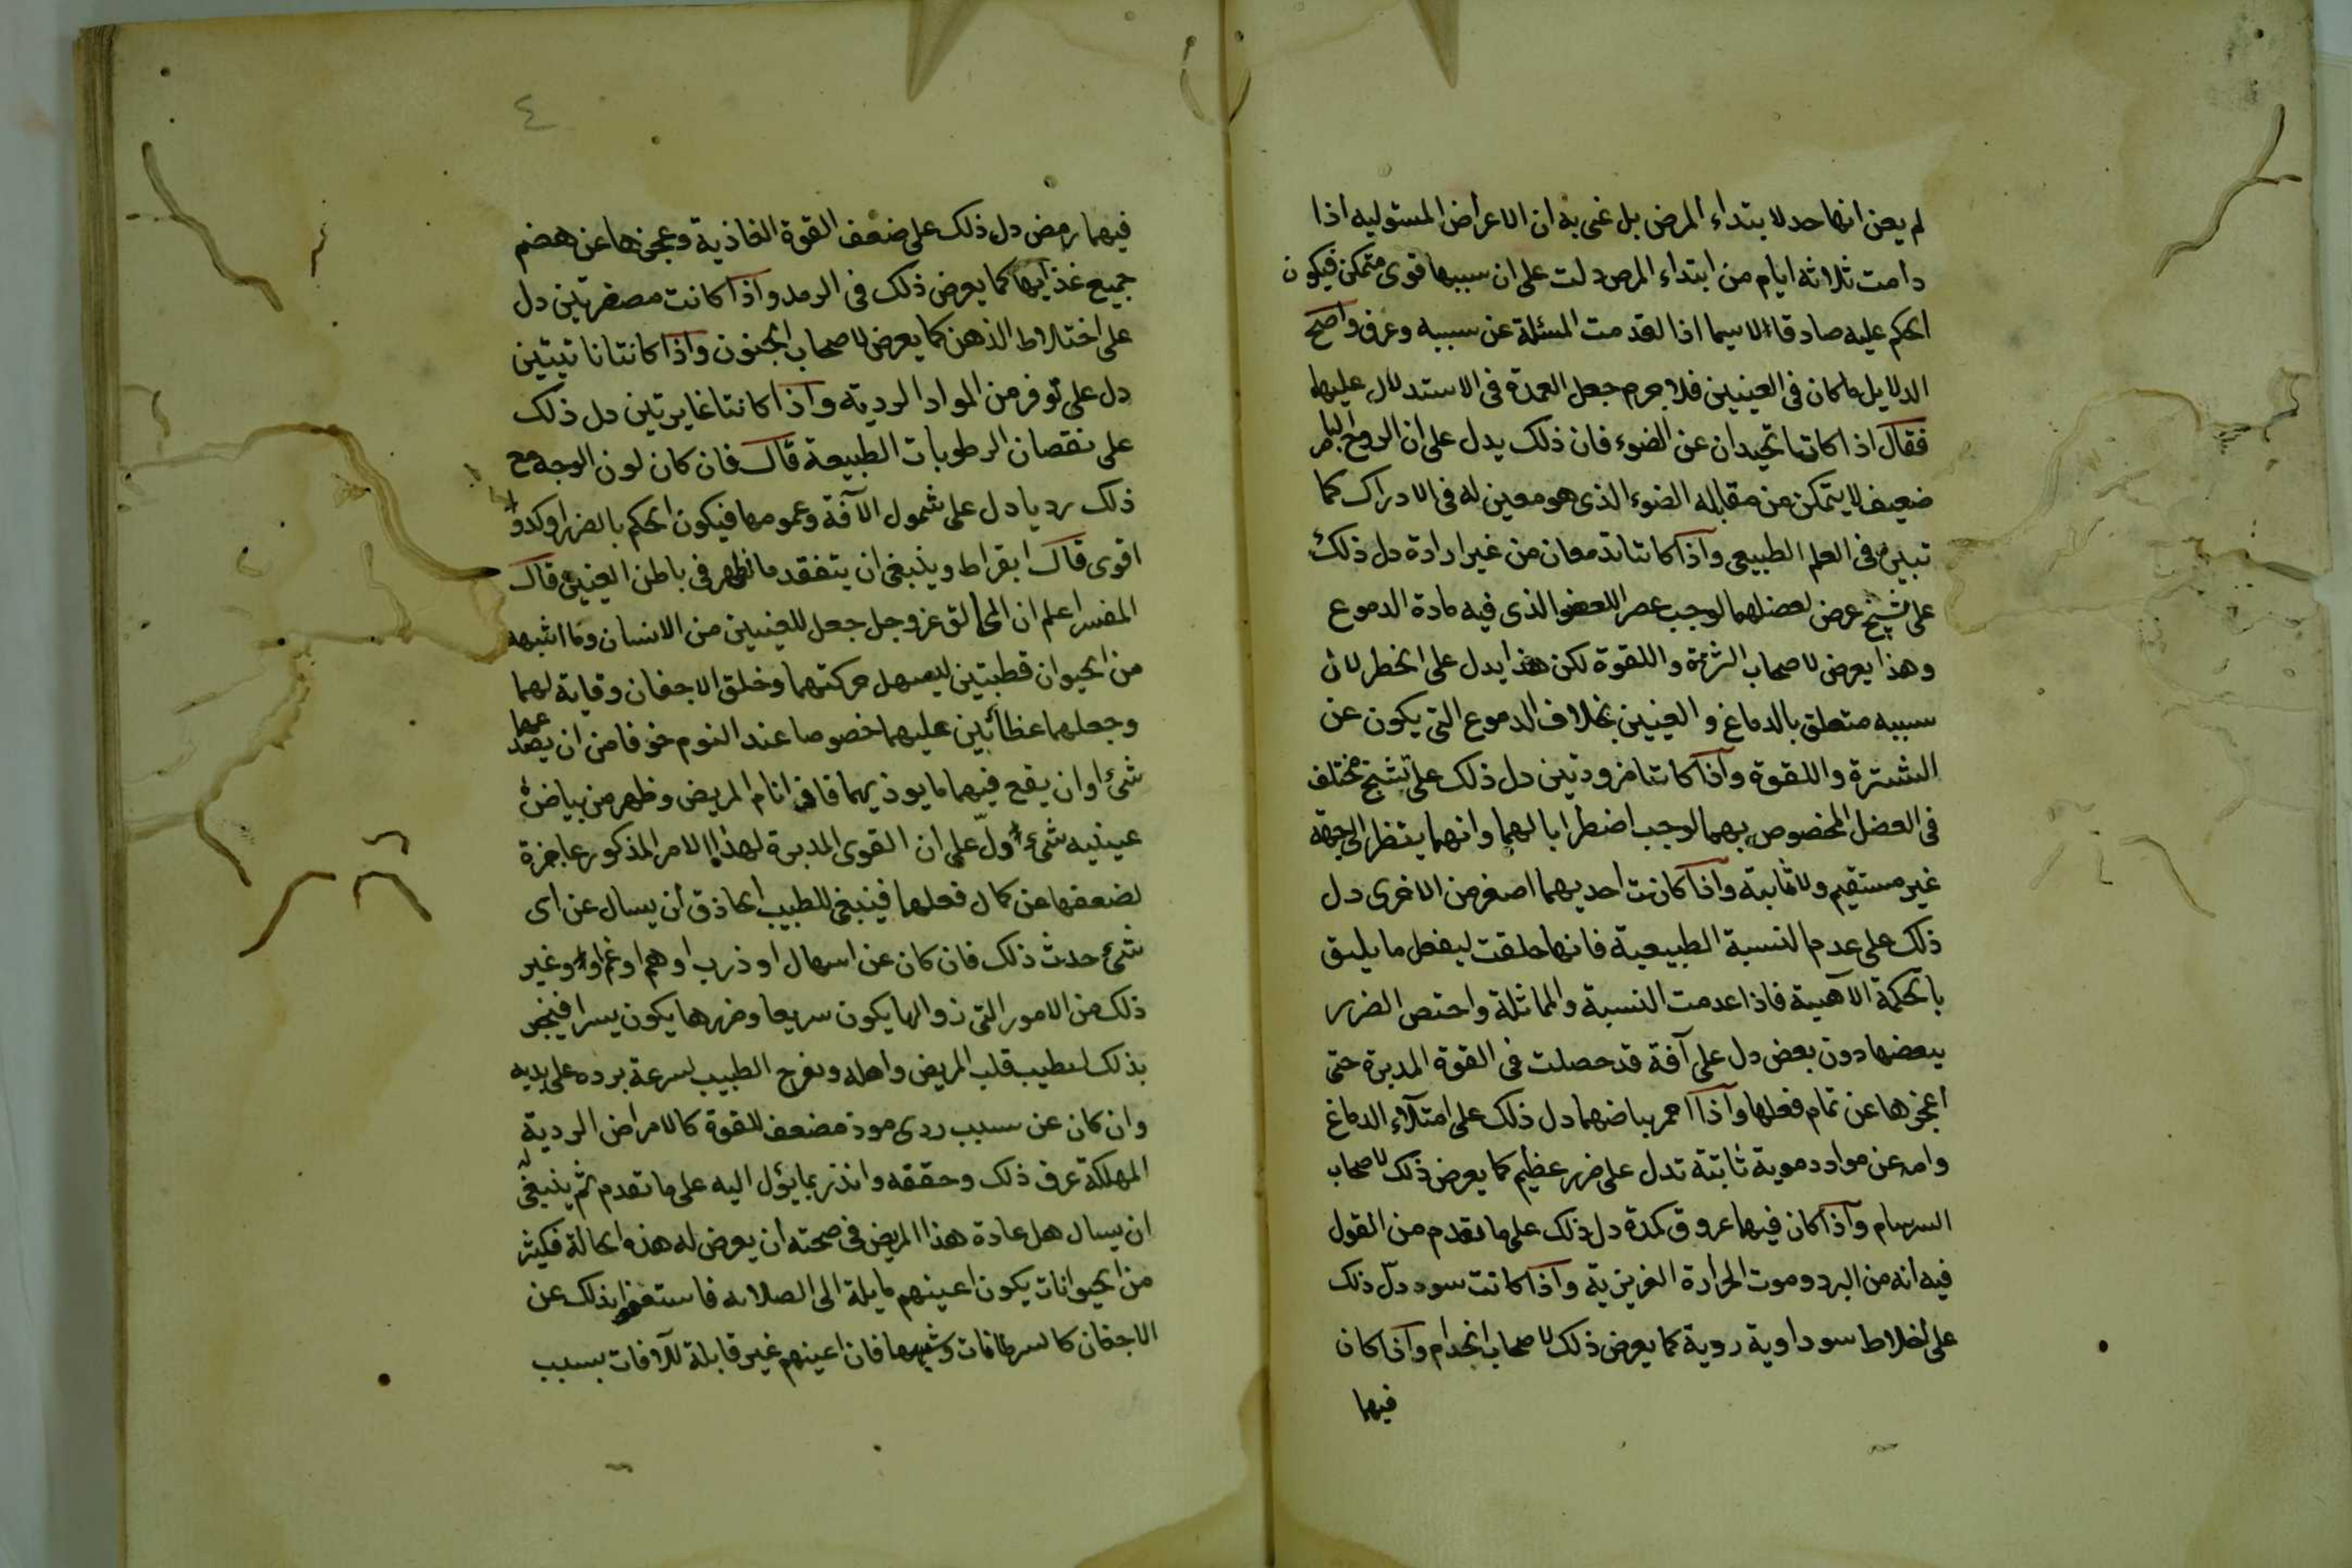 لم يعن انها حد لابتداء المرض بل عنى به ان الاعراض المستوليه اذا
دامت ثلاثه ايام من ابتداء المرض دلت على ان سببها قوى متمكن فيكون
الحكم عليه صادقا لاسيما اذا تقدمت المسئلة عن سببه وعرف واصح
الدلايل ما كان فى العينين فلا جرم جعل العمدة فى الاستدلال عليها
فقال اذا كانتا تحيدان عن الضوء فان ذلك يدل على ان الروح الباصر
ضعيف لا يتمكن من مقابله الضوء الذى هو معين له فى الادراك كما
تبين فى العلم الطبيعى واذا كانتا تدمعان من غير ارادة دل ذلك
على تشنج عرض لعضلهما لوجب عصر العضو الذى فيه مادة الدموع
وهذا يعرض لاصحاب الشترة واللقوة لكن هذا يدل على الخطر لان
سببه متعلق بالدماغ والعينين بخلاف الدموع التى يكون عن
الشترة واللقوة واذا كانتا مزورتين دل ذلك على تشنج مختلف
فى العضل المخصوص بهما لوجب اضطرابا لهما وانهما ينتظر الى جهة
غير مستقيم ولا ثابتة واذا كانت احديهما اصغر من الاخرى دل
ذلك على عدم النسبة الطبيعية فانها خلقت ليفعل ما يليق
بالحكمة الآهية فاذا عدمت النسبة والمماثلة واختص الضرر
ببعضها دون بعض دل على آفة قد حصلت فى القوة المدبرة حتى
اعجزها عن تمام فعلها واذا احمر بياضهما دل ذلك على امتلآء الدماغ
وامه عن مواد دموية ثابتة تدل على ضرر عظيم كما يعرض ذلك لاصحاب
السرسام واذا كان فيها عروق كمدة دل ذلك على ما تقدم من القول
فيه انه من البرد وموت الحرارة الغريزية واذا كانت سود دل ذلك
على اخلاط سوداوية ردية كما يعرض ذلك لاصحاب الجدام واذا كان
فيها
٤
فيهما رمض دل ذلك على ضعف القوة الغاذية وعجزها عن هضم
جميع غذايها كما يعرض ذلك فى الرمد واذا كانت مصفرتين دل
على اختلاط الذهن كما يعرض لاصحاب الجنون واذا كانتا ناتيتين
دل على توفر من المواد الردية واذا كانتا غايرتين دل ذلك
على نقصان الرطوبات الطبيعة قال فان كان لون الوجه مع
ذلك رديا دل على شمول الآفة وعمومها فيكون الحكم بالضرر اوكد و
اقوى قال ابقراط وينبغى ان يتفقد ما يظهر فى باطن العينين قال
المفسر اعلم ان الخالق عز وجل جعل للعينين من الانسان وما اشبهه
من الحيوان قطبتين ليسهل حركتهما وخلق الاجفان وقاية لهما
وجعلهما غطائين عليهما خصوصا عند النوم خوفا من ان يصدمهما
شئ او ان يقع فيهما ما يوذيهما فاذا نام المريض وظهر من بياض
عينيه شئ دلّ على ان القوى المدبرة لهذا الامر المذكور عاجزة
لضعفها عن كمال فعلها فينبغى للطبيب الحاذق ان يسال عن اى
شئ حدث ذلك فان كان عن اسهال او ذرب او هم او غم او غير
ذلك من الامور التى زوالها يكون سريعا وضررها يكون يسرا فيخبر
بذلك لتطيب قلب المريض واهله ويفرح الطبيب لسرعة برده على يديه
وان كان عن سبب ردى موذ مضعف للقوة كالامراض الردية
المهلكة عرف ذلك وحققه وانذر بما يؤل اليه على ما تقدم ثم ينبغى له
ان يسال هل عادة هذا المريض فى صحته ان يعرض له هذه الحالة فكثير
من الحيوانات يكون اعينهم مايلة الى الصلابه فاستغنوا بذلك عن
الاجفان كالسرطانات وشبهها فان اعينهم غير قابلة للآفات بسبب